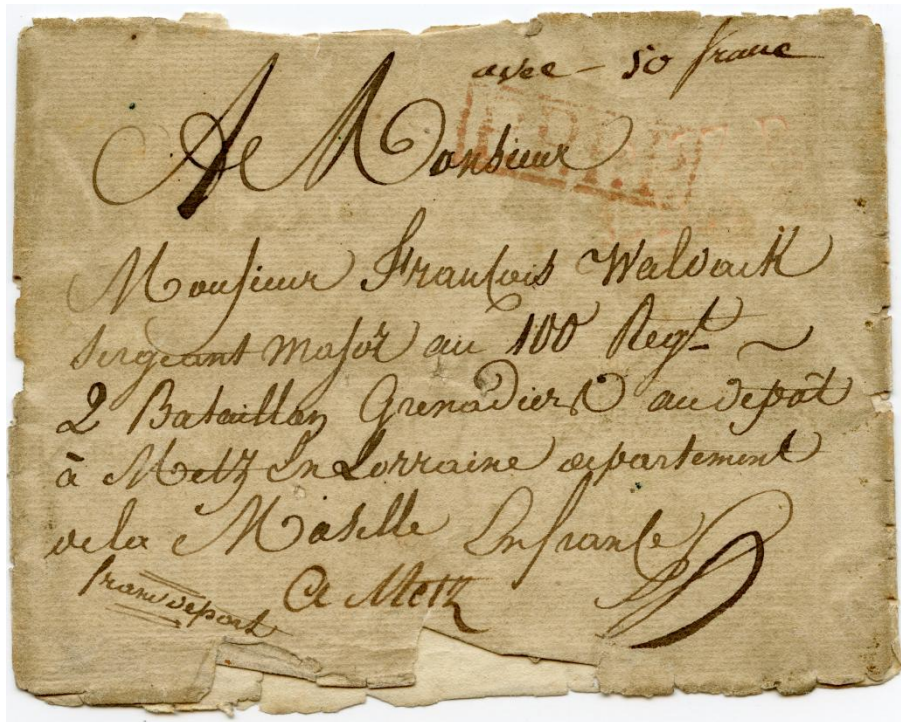 avec - 50 franc
A Monsieur
Monsieur François Walvack
Sergeant Major au 100 Regt
2 Bataillon Grenadiers au depôt
à Metz En Lorraine departement
de la Moselle En france
A Metz
franc de port